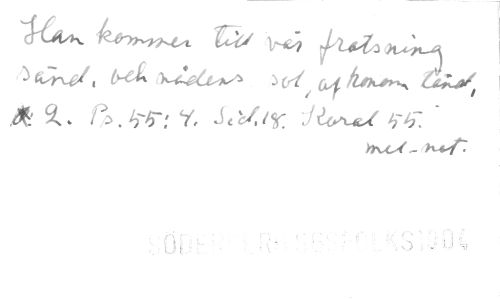 Han kommer till vår fratsning
sänd, och nådens sol, af honom tänd,
: 2. Ps. 55: 4. Sid. 18. Koral 55.
mel-not.